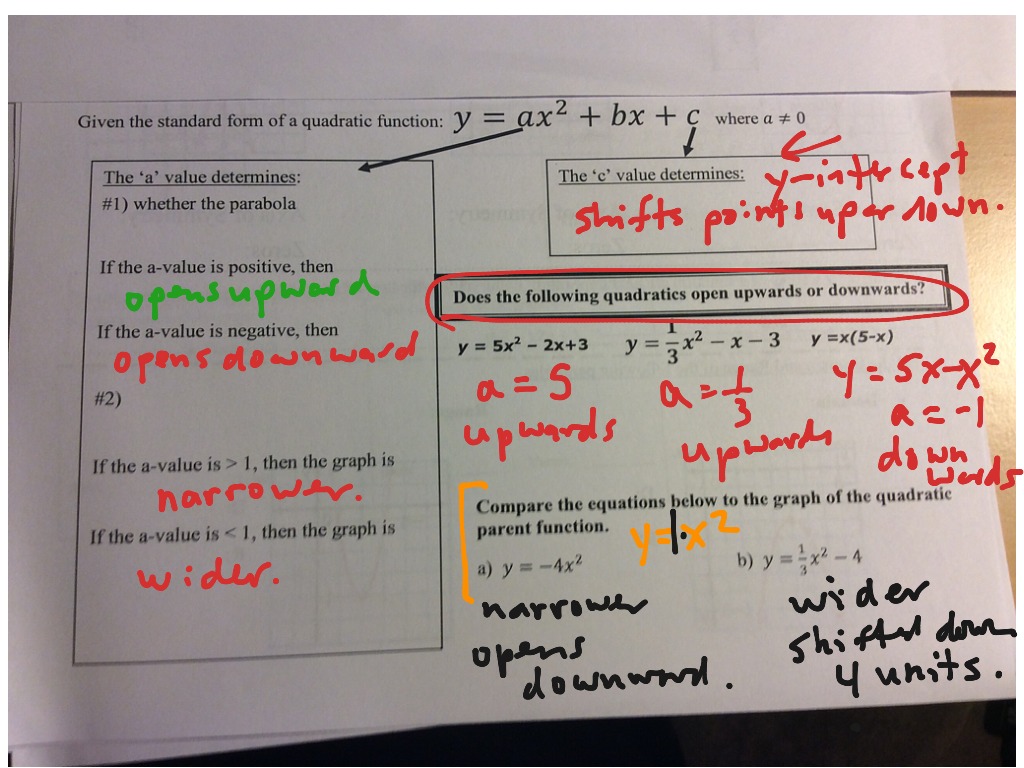 Given the standard form of a quadratic function: y = ax² + bx + c where a ≠ 0
The ‘a’ value determines:
#1) whether the parabola
If the a-value is positive, then
opens upward
If the a-value is negative, then
opens downward
#2)
If the a-value is > 1, then the graph is
narrower.
If the a-value is < 1, then the graph is
wider.
The ‘c’ value determines: y-intercept
shifts points up or down.
Does the following quadratics open upwards or downwards?
y = 5x² − 2x+3 y = 1/3 x² − x − 3 y =x(5-x)
a = 5 a = 1/3 y = 5x-x²
upwards upwards a = -1
down
wards
Compare the equations below to the graph of the quadratic
parent function. y=1·x²
a) y = −4x² b) y = 1/3 x² − 4
narrower wider
opens shifted down
downward. 4 units.